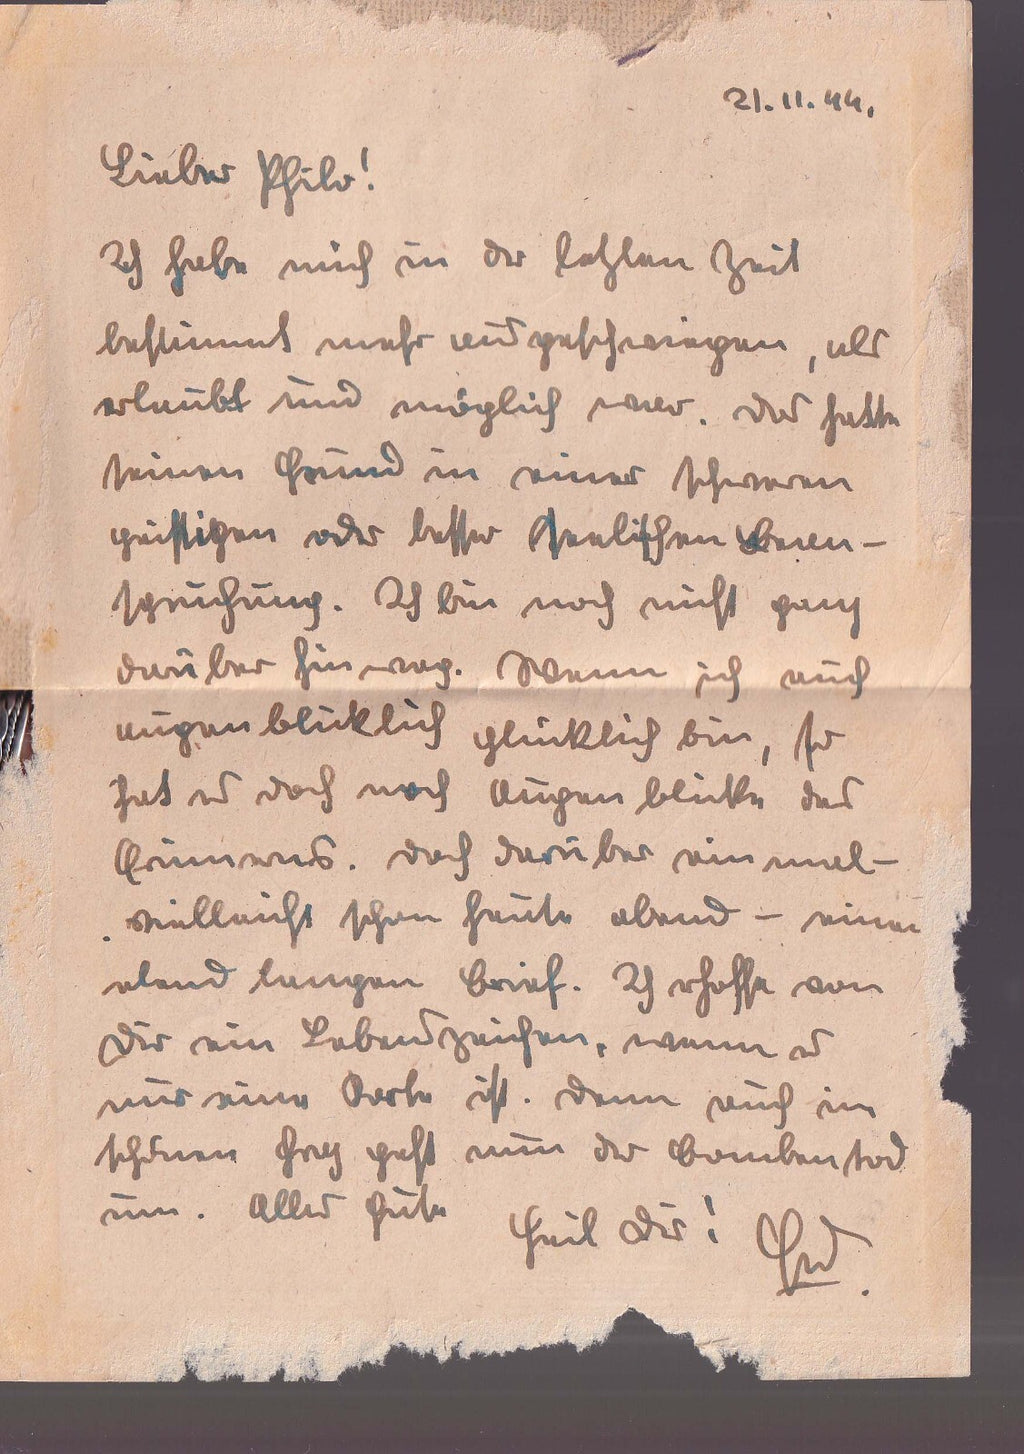 21.11.44.
Lieber Philo!
Ich habe mich in der letzten Zeit
bestimmt mehr ausgeschwiegen, als
erlaubt und möglich war. Das hatte
seinen Grund in einer schweren
geistigen oder besser seelischen Bean-
spruchung. Ich bin noch nicht ganz
darüber hinweg. Wenn ich auch
augenblicklich glücklich bin, so
hat es doch noch Augenblicke des
Erinnerns. Doch darüber einmal –
vielleicht schon heute abend – einen
elend langen Brief. Ich erhoffe von
Dir ein Lebenszeichen, wenn es
nur eine Karte ist. Denn auch im
schönen Graz geht nun der Bombentod
um. Alles Gute
Heil Dir!